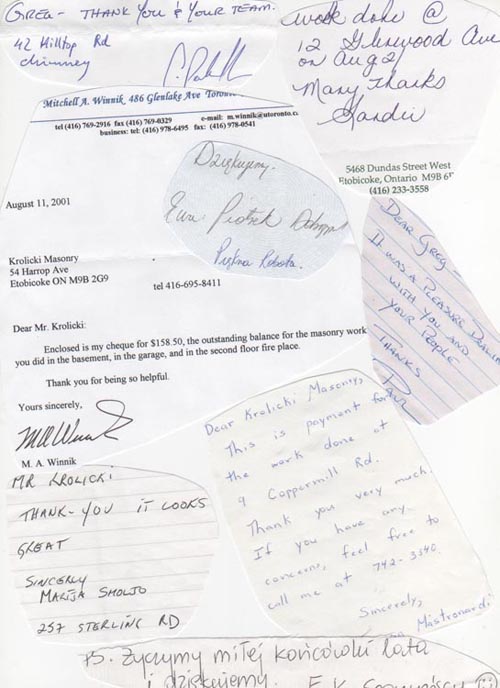 GREG - THANK YOU & YOUR TEAM.
42 Hilltop Rd
chimney
work done @
12 Glenwood Ave
on Aug 2
Many Thanks
Sandii
5468 Dundas Street West
Etobicoke, Ontario M9B 6
(416) 233-3558
Mitchell A. Winnik, 486 Glenlake Ave Toronto
tel (416) 769-2916 fax (416) 769-0329 e-mail: m.winnik@utoronto.c
business: tel: (416) 978-6495 fax: (416) 978-0541
August 11, 2001
Dziękujemy.
Ewa i Piotrek
Piękna Robota.
Krolicki Masonry
54 Harrop Ave
Etobicoke ON M9B 2G9 tel 416-695-8411
Dear Mr. Krolicki:
Enclosed is my cheque for $158.50, the outstanding balance for the masonry work
you did in the basement, in the garage, and in the second floor fire place.
Thank you for being so helpful.
Yours sincerely,
M. A. Winnik
DEAR GREG -
IT WAS A PLEASURE
WITH YOU AND
YOUR PEOPLE
THANKS
Dear Krolicki Masonry,
This is payment for
the work done at
9 Coppermill Rd.
Thank you very much.
If you have any
concerns, feel free to
call me at 742-3540.
Sincerely,
Mastronardi
MR KROLICKI
THANK-YOU IT LOOKS
GREAT
SINCERLY
MARIJA SMOLJO
257 STERLING RD
PS. Życzymy miłej końcówki lata
i dziękujemy. E.K.